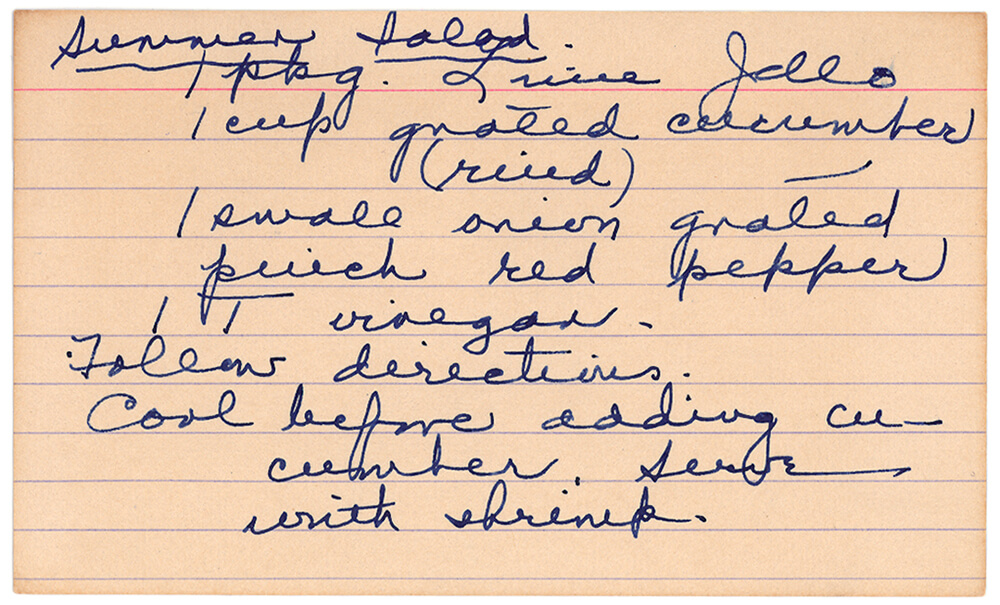 Summer Salad.
1 pkg. Lime Jello
1 cup grated cucumber
(rind)
1 small onion grated
pinch red pepper
1 T vinegar.
Follow directions.
Cool before adding cu-
cumber. Serve
with shrimp.